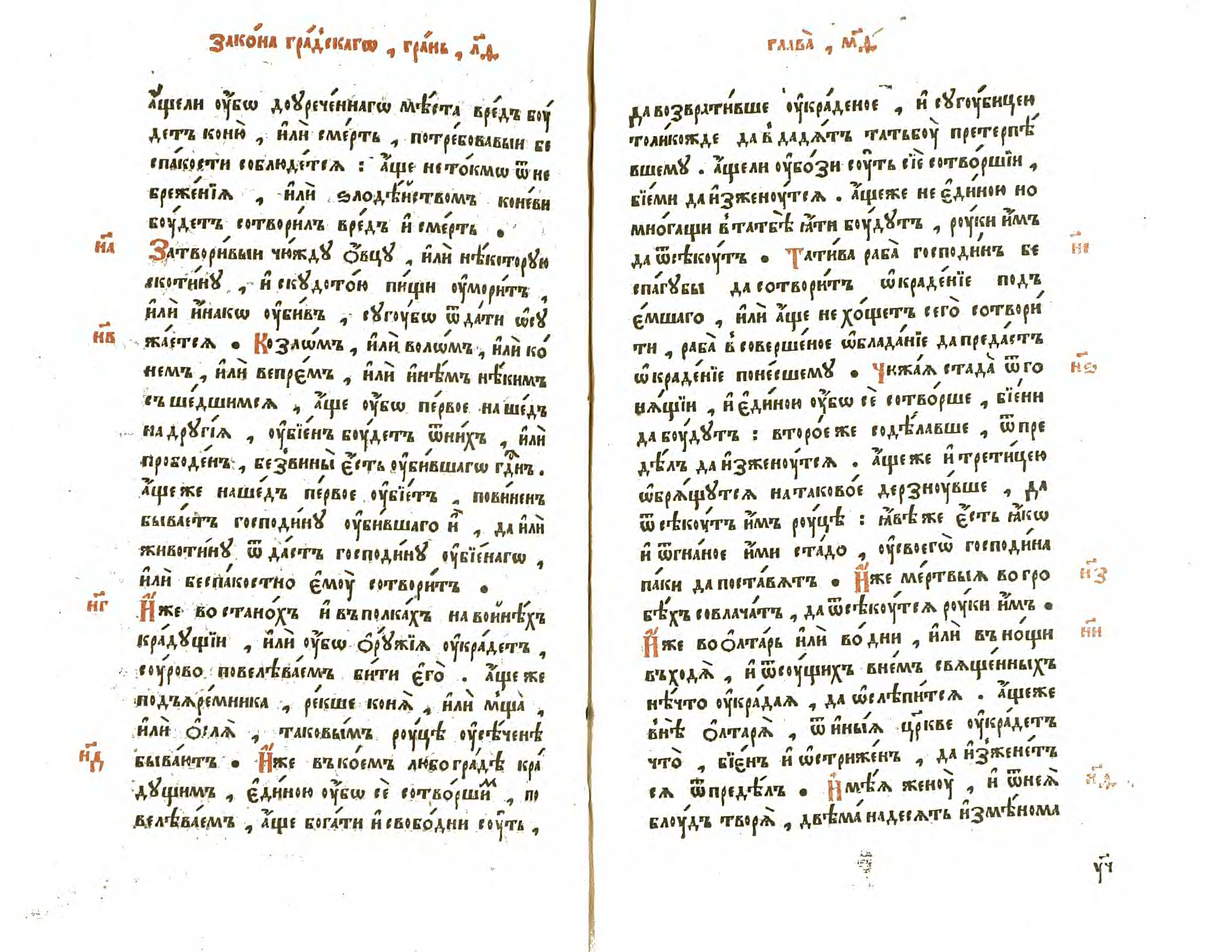 Зако́на гра́дскагѡ , гра́нь , л҃ѳ
а҆́щели ᲂу҆́бѡ доурече́ннагѡ мѣ́ста вре́дъ боу́
детъ коню̀ , и҆лѝ сме́рть , потре́бовавыи бе
спакости соблюде́тсѧ : а҆́ще нето́кмѡ ѿ не
бреже́нїѧ , и҆лѝ ѕлодѣ́йствомъ коне́ви
боу́детъ сотвори́лъ вре́дъ и҆ сме́рть .
н҃а
Затвори́выи чю́жду ѻ҆́вцу , и҆лѝ нѣ́которую
скоти́ну , и҆ скудото́ю пи́щи ᲂу҆мори́тъ ,
и҆лѝ и҆́накѡ ᲂу҆би́въ , сугоу́бѡ ѿда́ти ѡ҆су
н҃в
жа́етсѧ . Козлѡ́мъ , и҆лѝ волѡ́мъ , и҆лѝ ко́
немъ , и҆лѝ ве́премъ , и҆лѝ и҆нѣ́мъ нѣ́кимъ
съше́дшимсѧ , а҆́ще ᲂу҆́бѡ пе́рвое наше́дъ
надругі́ѧ , ᲂу҆бїе́нъ боу́детъ ѿни́хъ , и҆лѝ
прободе́нъ , безвины̀ є҆́сть ᲂу҆би́вшагѡ гд҃нъ .
а҆́щеже наше́дъ пе́рвое ᲂу҆бїе́тъ , пови́ненъ
быва́етъ господи́ну ᲂу҆би́вшаго и҆̀ , да и҆лѝ
животи́ну ѿда́стъ господи́ну ᲂу҆бїе́нагѡ ,
и҆лѝ беспа́костно є҆моу̀ сотвори́тъ .
н҃г
И҆́же востано́хъ и҆ въполка́хъ навои́нѣхъ
краду́щїи , и҆лѝ ᲂу҆́бѡ ѻ҆рꙋ́жїѧ ᲂу҆краде́тъ ,
соу́рово повелѣва́емъ би́ти є҆го̀ . а҆́щеже
подъѧре́мника , ре́кше конѧ̀ , и҆лѝ мща̀ ,
и҆лѝ ѻ҆слѧ̀ , таковы́мъ роу́цѣ ᲂу҆сѣ́ченѣ
н҃д
быва́ютъ . И҆́же въко́емъ либогра́дѣ кра
ду́щимъ , є҆ди́ною ᲂу҆́бѡ сѐ сотво́ршим , по
велѣва́емъ , а҆́ще бога́ти и҆ свобо́дни соу́ть ,
глава̀ , м҃д
да возврати́вше ᲂу҆кра́деное , и҆ сугоу́бицею
толи́кожде да вдадѧ́тъ татьбоу̀ претерпѣ́
вшему . а҆́щели ᲂу҆бо́зи соу́ть сїѐ сотво́ршїи ,
бїе́ми да и҆зжену́тсѧ . а҆́щеже не є҆ди́ною но
мно́гащи втатбѣ̀ ꙗ҆́ти боу́дутъ , роу́ки и҆̀мъ
н҃є
да ѿсѣкоу́тъ . Тати́ва раба̀ господи́нъ бе
спа́губы да сотвори́тъ ѡ҆краде́нїе подъ
є҆́мшаго , и҆лѝ а҆́ще не хо́щетъ сего̀ сотвори́
ти , раба̀ всоверше́ное ѡ҆блада́нїе да преда́стъ
н҃ѕ
ѡ҆краде́нїе поне́сшему . Чюжа́ѧ стада̀ ѿго
нѧ́щїи , и҆ є҆ди́ною ᲂу҆́бѡ сѐ сотво́рше , бїе́ни
да боу́дутъ : второ́еже содѣ́лавше , ѿпре
дѣ́лъ да и҆зженоу́тсѧ . а҆́щеже и҆ трети́цею
ѡ҆брѧ́щутсѧ натаково́е дерзноу́вше , да
ѿсѣкоу́тъ и҆̀мъ роу́цѣ : ꙗ҆́вѣже є҆́сть ꙗ҆́кѡ
и҆ ѿгна́ное и҆́ми ста́до , ᲂу҆своегѡ̀ господи́на
н҃з
па́ки да поста́вѧтъ . И҆́же ме́ртвыѧ вогро
бѣ́хъ совлача́тъ , да ѿсѣкоу́тсѧ роу́ки и҆̀мъ .
н҃и
И҆́же воѻ҆лта́рь и҆лѝ во́дни , и҆лѝ въно́щи
въходѧ̀ , и҆ ѿсоу́щихъ вне́мъ свѧще́нныхъ
нѣ́что ᲂу҆кра́даѧ , да ѡ҆слѣпи́тсѧ . а҆́щеже
внѣ̀ ѻ҆лтарѧ̀ , ѿ и҆ны́ѧ цр҃кве ᲂу҆краде́тъ
что̀ , бїе́нъ и҆ ѡ҆стриже́нъ , да и҆зжене́т
н҃ѳ
сѧ ѿпредѣ́лъ . И҆мѣ́ѧ женоу̀ , и҆ ѿнеѧ̀
блоу́дъ творѧ̀ , двѣма́надесѧть и҆змѣ́нома
у҃ч